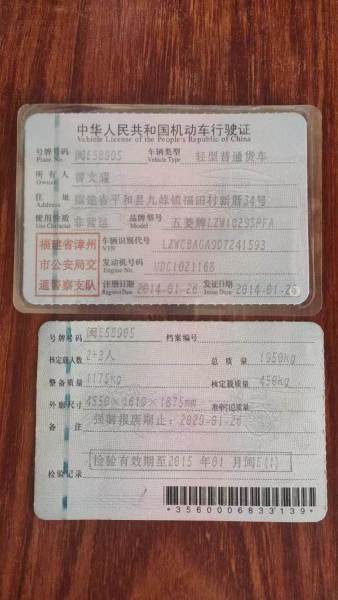 中华人民共和国机动车行驶证
Vehicle License of the People's Republic of China
号牌号码 闽E58905 车辆类型 轻型普通货车
Plate No. Vehicle Type
所有人
Owner
住址 福建省平和县九峰镇福田村新厝34号
Address
使用性质 非营运 品牌型号 五菱牌LZW1029SPFA
Use Character Model
福建省漳州
市公安局交
通警察支队
车辆识别代号 LZWCBAGA9D7241593
VIN
发动机号码 UDC1021168
Engine No.
注册日期 2014-01-26 发证日期 2014-01-26
Register Date Issue Date
号牌号码 闽E58905 档案编号
核定载人数 2+3人 总质量 1950kg
整备质量 1175kg 核定载质量 450kg
外廓尺寸 4550×1610×1875mm 准牵引总质量
备注 强制报废期止:2029-01-26
检验有效期至2015年01月闽E(1)
检验记录
*3560006833139*